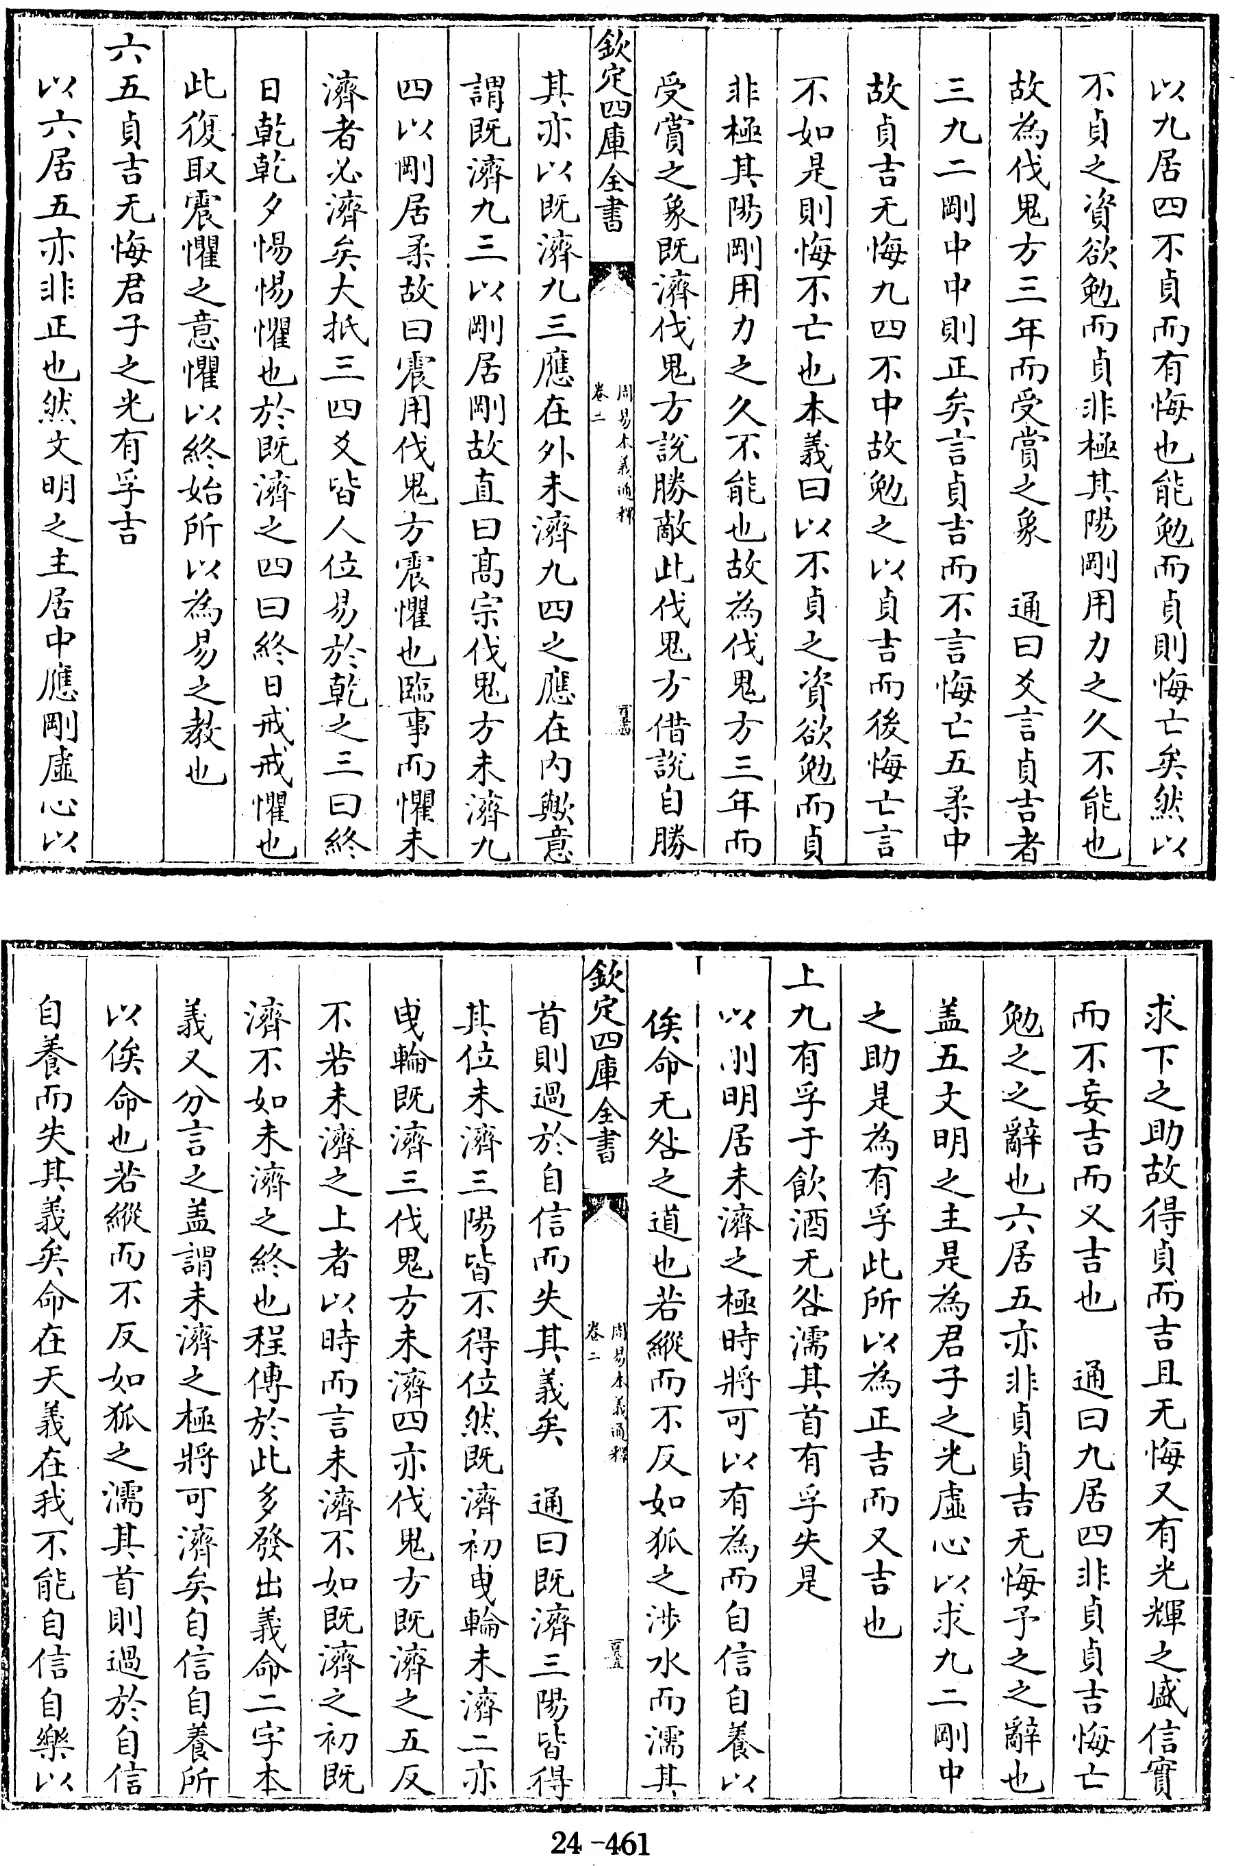 以九居四不貞而有悔也能勉而貞則悔亡矣然以
不貞之資欲勉而貞非極其陽剛用力之久不能也
故為伐鬼方三年而受賞之象　通曰爻言貞吉者
三九二剛中中則正矣言貞吉而不言悔亡五柔中
故貞吉无悔九四不中故勉之以貞吉而後悔亡言
不如是則悔不亡也本義曰以不貞之資欲勉而貞
非極其陽剛用力之久不能也故為伐鬼方三年而
受賞之象既濟伐鬼方說勝敵此伐鬼方借說自勝
欽定四庫全書
周易本義通釋
卷二
其亦以既濟九三應在外未濟九四之應在内歟意
謂既濟九三以剛居剛故直曰髙宗伐鬼方未濟九
四以剛居柔故曰震用伐鬼方震懼也臨事而懼未
濟者必濟矣大抵三四爻皆人位易於乾之三曰終
日乾乾夕惕惕懼也於既濟之四曰終日戒戒懼也
此復取震懼之意懼以終始所以為易之教也
六五貞吉无悔君子之光有孚吉
以六居五亦非正也然文明之主居中應剛虛心以
求下之助故得貞而吉且无悔又有光輝之盛信實
而不妄吉而又吉也　通曰九居四非貞貞吉悔亡
勉之之辭也六居五亦非貞貞吉无悔予之之辭也
盖五文明之主是為君子之光虛心以求九二剛中
之助是為有孚此所以為正吉而又吉也
上九有孚于飲酒无咎濡其首有孚失是
以剛明居未濟之極時將可以有為而自信自養以
俟命无咎之道也若縱而不反如狐之涉水而濡其
欽定四庫全書
周易本義通釋
卷二
首則過於自信而失其義矣　通曰既濟三陽皆得
其位未濟三陽皆不得位然既濟初曳輪未濟二亦
曳輪既濟三伐鬼方未濟四亦伐鬼方既濟之五反
不若未濟之上者以時而言未濟不如既濟之初既
濟不如未濟之終也程傳於此多發出義命二字本
義又分言之盖謂未濟之極將可濟矣自信自養所
以俟命也若縱而不反如狐之濡其首則過於自信
自養而失其義矣命在天義在我不能自信自樂以
24-461